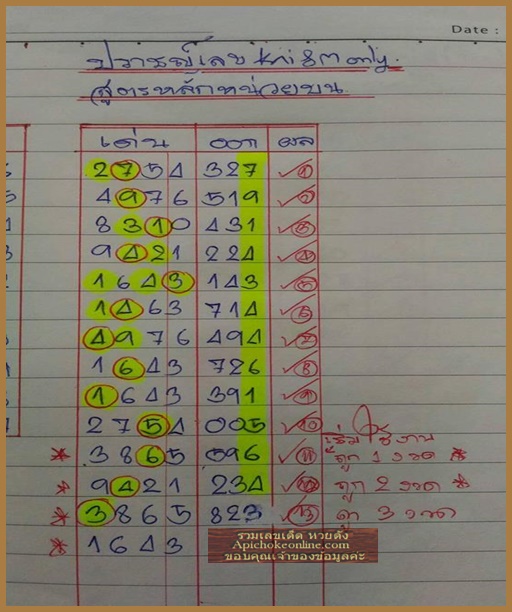 Date :
ปราชญ์เลข
only.
สูตรหลักหน่วยบน
เด่น ออก ผล
2754 327 ✓1
4976 519 ✓2
8310 431 ✓3
9421 224 ✓4
1643 143 ✓5
1463 714 ✓6
4976 494 ✓7
1643 726 ✓8
1643 391 ✓9
2754 005 ✓10
เริ่มใช้งาน
* 3865 596 ✓11 ถูก 1 งวด *
* 9421 234 ✓12 ถูก 2 งวด *
* 3865 823 ✓13 3 งวด
* 1643
รวมเลขเด็ด หวยดัง
Apichokeonline.com
ขอบคุณเจ้าของข้อมูลค่ะ